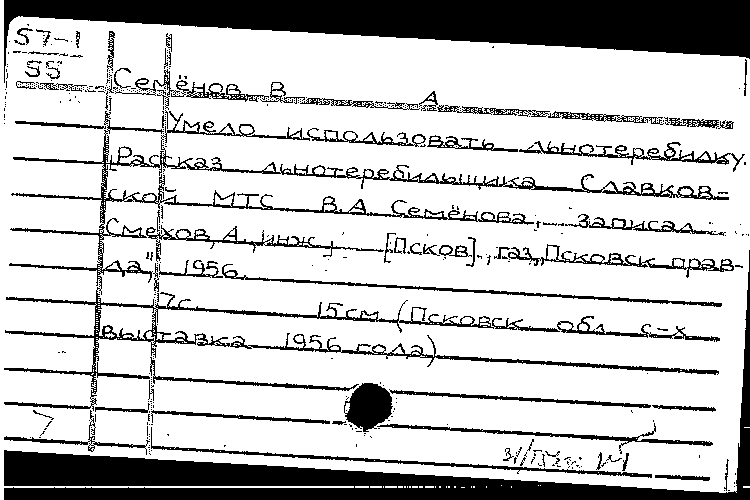 57-1
55
Семёнов, В А
Умело использовать льнотеребилку.
[Рассказ льнотеребильщика Славков-
ской МТС В.А. Семёнова, записал
Смехов, А., инж.] [Псков], газ. „Псковск. прав-
да", 1956.
7с. 15см (Псковск. обл. с-х
выставка 1956 года)